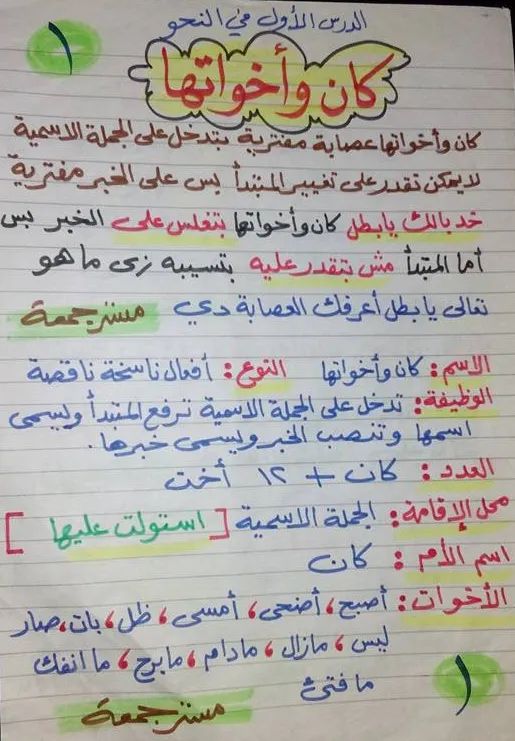 الدرس الأول في النحو
١
كان وأخواتها
كان وأخواتها عصابة مفترية بتدخل على الجملة الاسمية
لا يمكن تقدر على تغيير المبتدأ بس على الخبر مفترية
خد بالك يا بطل كان وأخواتها بتغلس على الخبر بس
أما المبتدأ مش بتقدر عليه بتسيبه زى ما هو
تعالى يا بطل أعرفك العصابة دي مستر جمعة
الاسم: كان وأخواتها النوع: أفعال ناسخة ناقصة
الوظيفة: تدخل على الجملة الاسمية ترفع المبتدأ ويسمى
اسمها وتنصب الخبر ويسمى خبرها.
العدد: كان + ١٢ أخت
محل الإقامة: الجملة الاسمية [ استولت عليها ]
اسم الأم: كان
الأخوات: أصبح، أضحى، أمسى، ظل، بات، صار
ليس، مازال، مادام، مابرح، ما انفك
ما فتئ
١
مستر جمعة